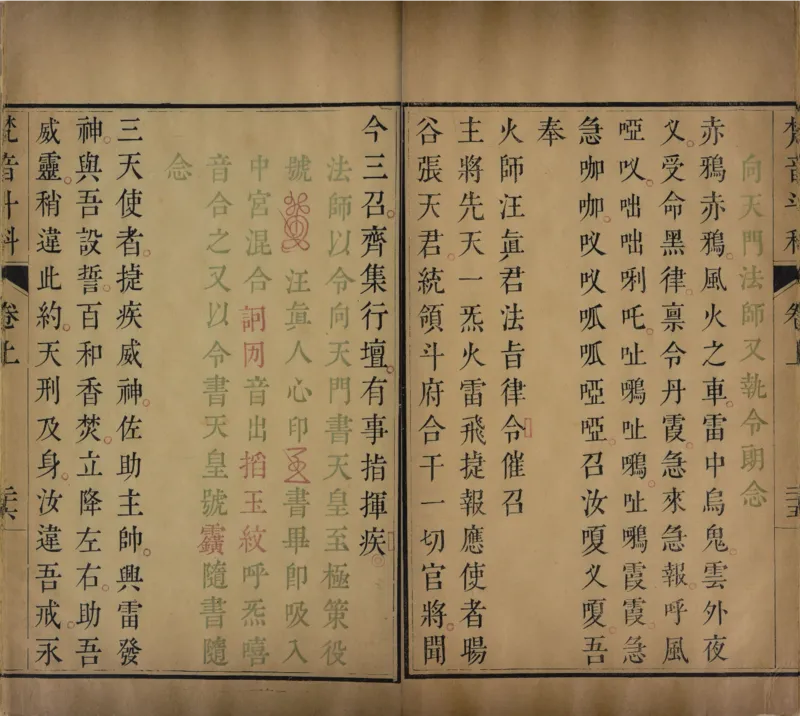 梵音斗科 卷上 三五
向天門法師又執令朗念
赤鴉赤鴉風火之車雷中烏鬼雲外夜
叉受命黑律禀令丹霞急來急報呼風
啞㕥咄咄唎吒吡鴫吡鴫吡鴫霞霞急
急咖咖㕥㕥呱呱啞啞召汝嗄㕛嗄吾
奉
火師汪眞君法旨律令催召
主將先天一炁火雷飛捷報應使者暘
谷張天君統領斗府合干一切官將聞
今三召齊集行壇有事指揮疾
法師以令向天門書天皇至極策役
號 汪眞人心印 書畢卽吸入
中宮混合訶囘音出搯玉紋呼炁嘻
音合之又以令書天皇號 隨書隨
念
三天使者捷疾威神佐助主帥興雷發
神與吾設誓百和香焚立降左右助吾
威靈稍違此約天刑及身汝違吾戒永
梵音斗科 卷上 三六